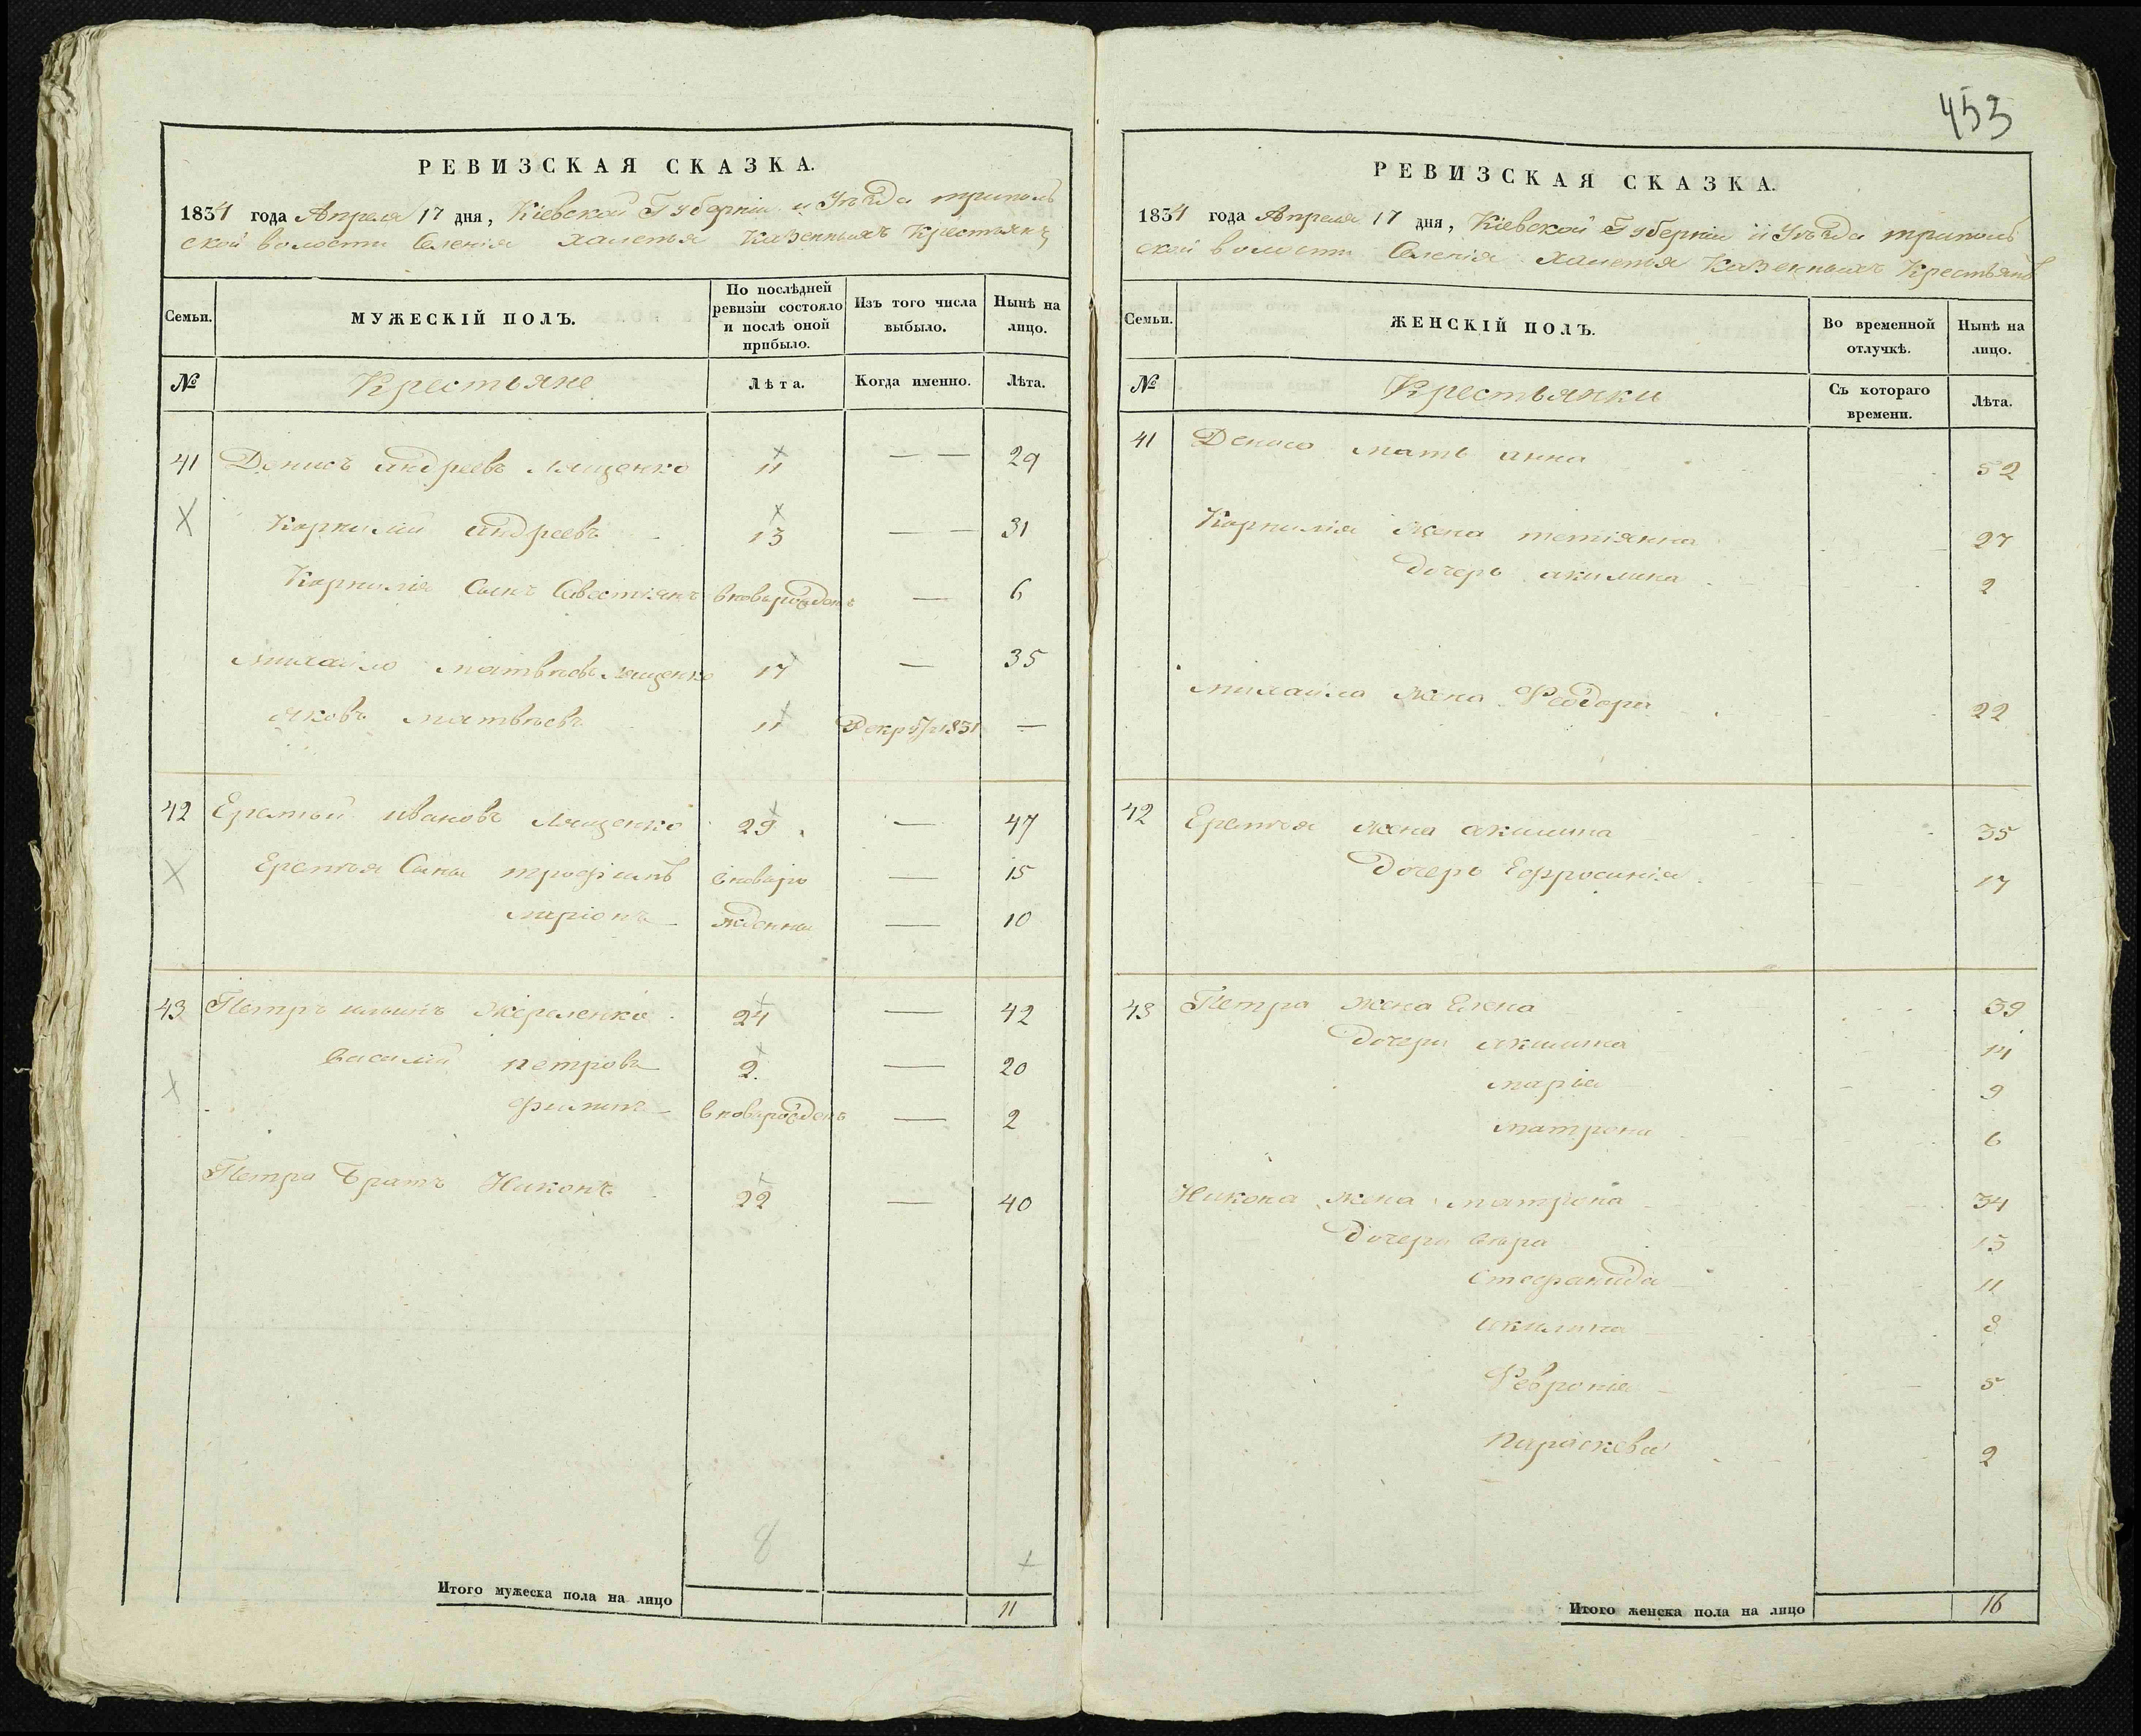 РЕВИЗСКАЯ СКАЗКА.
1834 года Апреля 17 дня, Кіевской Губерніи и Уѣзда триполь
ской волости Селенія Халепья Казенныхъ Крестьянъ
Семьи. МУЖЕСКІЙ ПОЛЪ. По послѣдней ревизіи состояло и послѣ оной прибыло. Изъ того числа выбыло. Нынѣ на лицо.
№ Крестьяне Лѣта. Когда именно. Лѣта.
41 Денисъ андреевъ 11 — — 29
Х Корнилій андреевъ 13 — — 31
Корнилія Сынъ Севастіянъ вноворожденъ — 6
Михайло матвѣевъ 17 — 35
яковъ матвѣевъ 11 1831 —
42 Еремѣй ивановъ 29 — 47
Х Еремѣя Сыны трофимъ вноворо — 15
ларіонъ жденны — 10
43 Петръ ильинъ Жераленко 24 — 42
Х василій петровъ 2 — 20
филипъ вноворожденъ — 2
Петра братъ Никонъ 22 — 40
8
Итого мужеска пола на лицо 11
453
РЕВИЗСКАЯ СКАЗКА.
1834 года Апреля 17 дня, Кіевской Губерніи и Уѣзда триполь
ской волости Селенія Халепья Казенныхъ Крестьянъ
Семьи. ЖЕНСКІЙ ПОЛЪ. Во временной отлучкѣ. Нынѣ на лицо.
№ Крестьянки Съ котораго времени. Лѣта.
41 Дениса мать анна 52
Корнилія жена тетіянна 27
дочерь акилина 2
михайла жена Феодора 22
42 Еремѣя жена акилина 35
дочерь Ефросинія 17
43 Петра жена Елена 39
дочери акилина 14
марія 9
матрона 6
Никона жена матрона 34
дочери вѣра 15
стефанида 11
акилина 8
Февронія 5
параскева 2
Итого женска пола на лицо 16